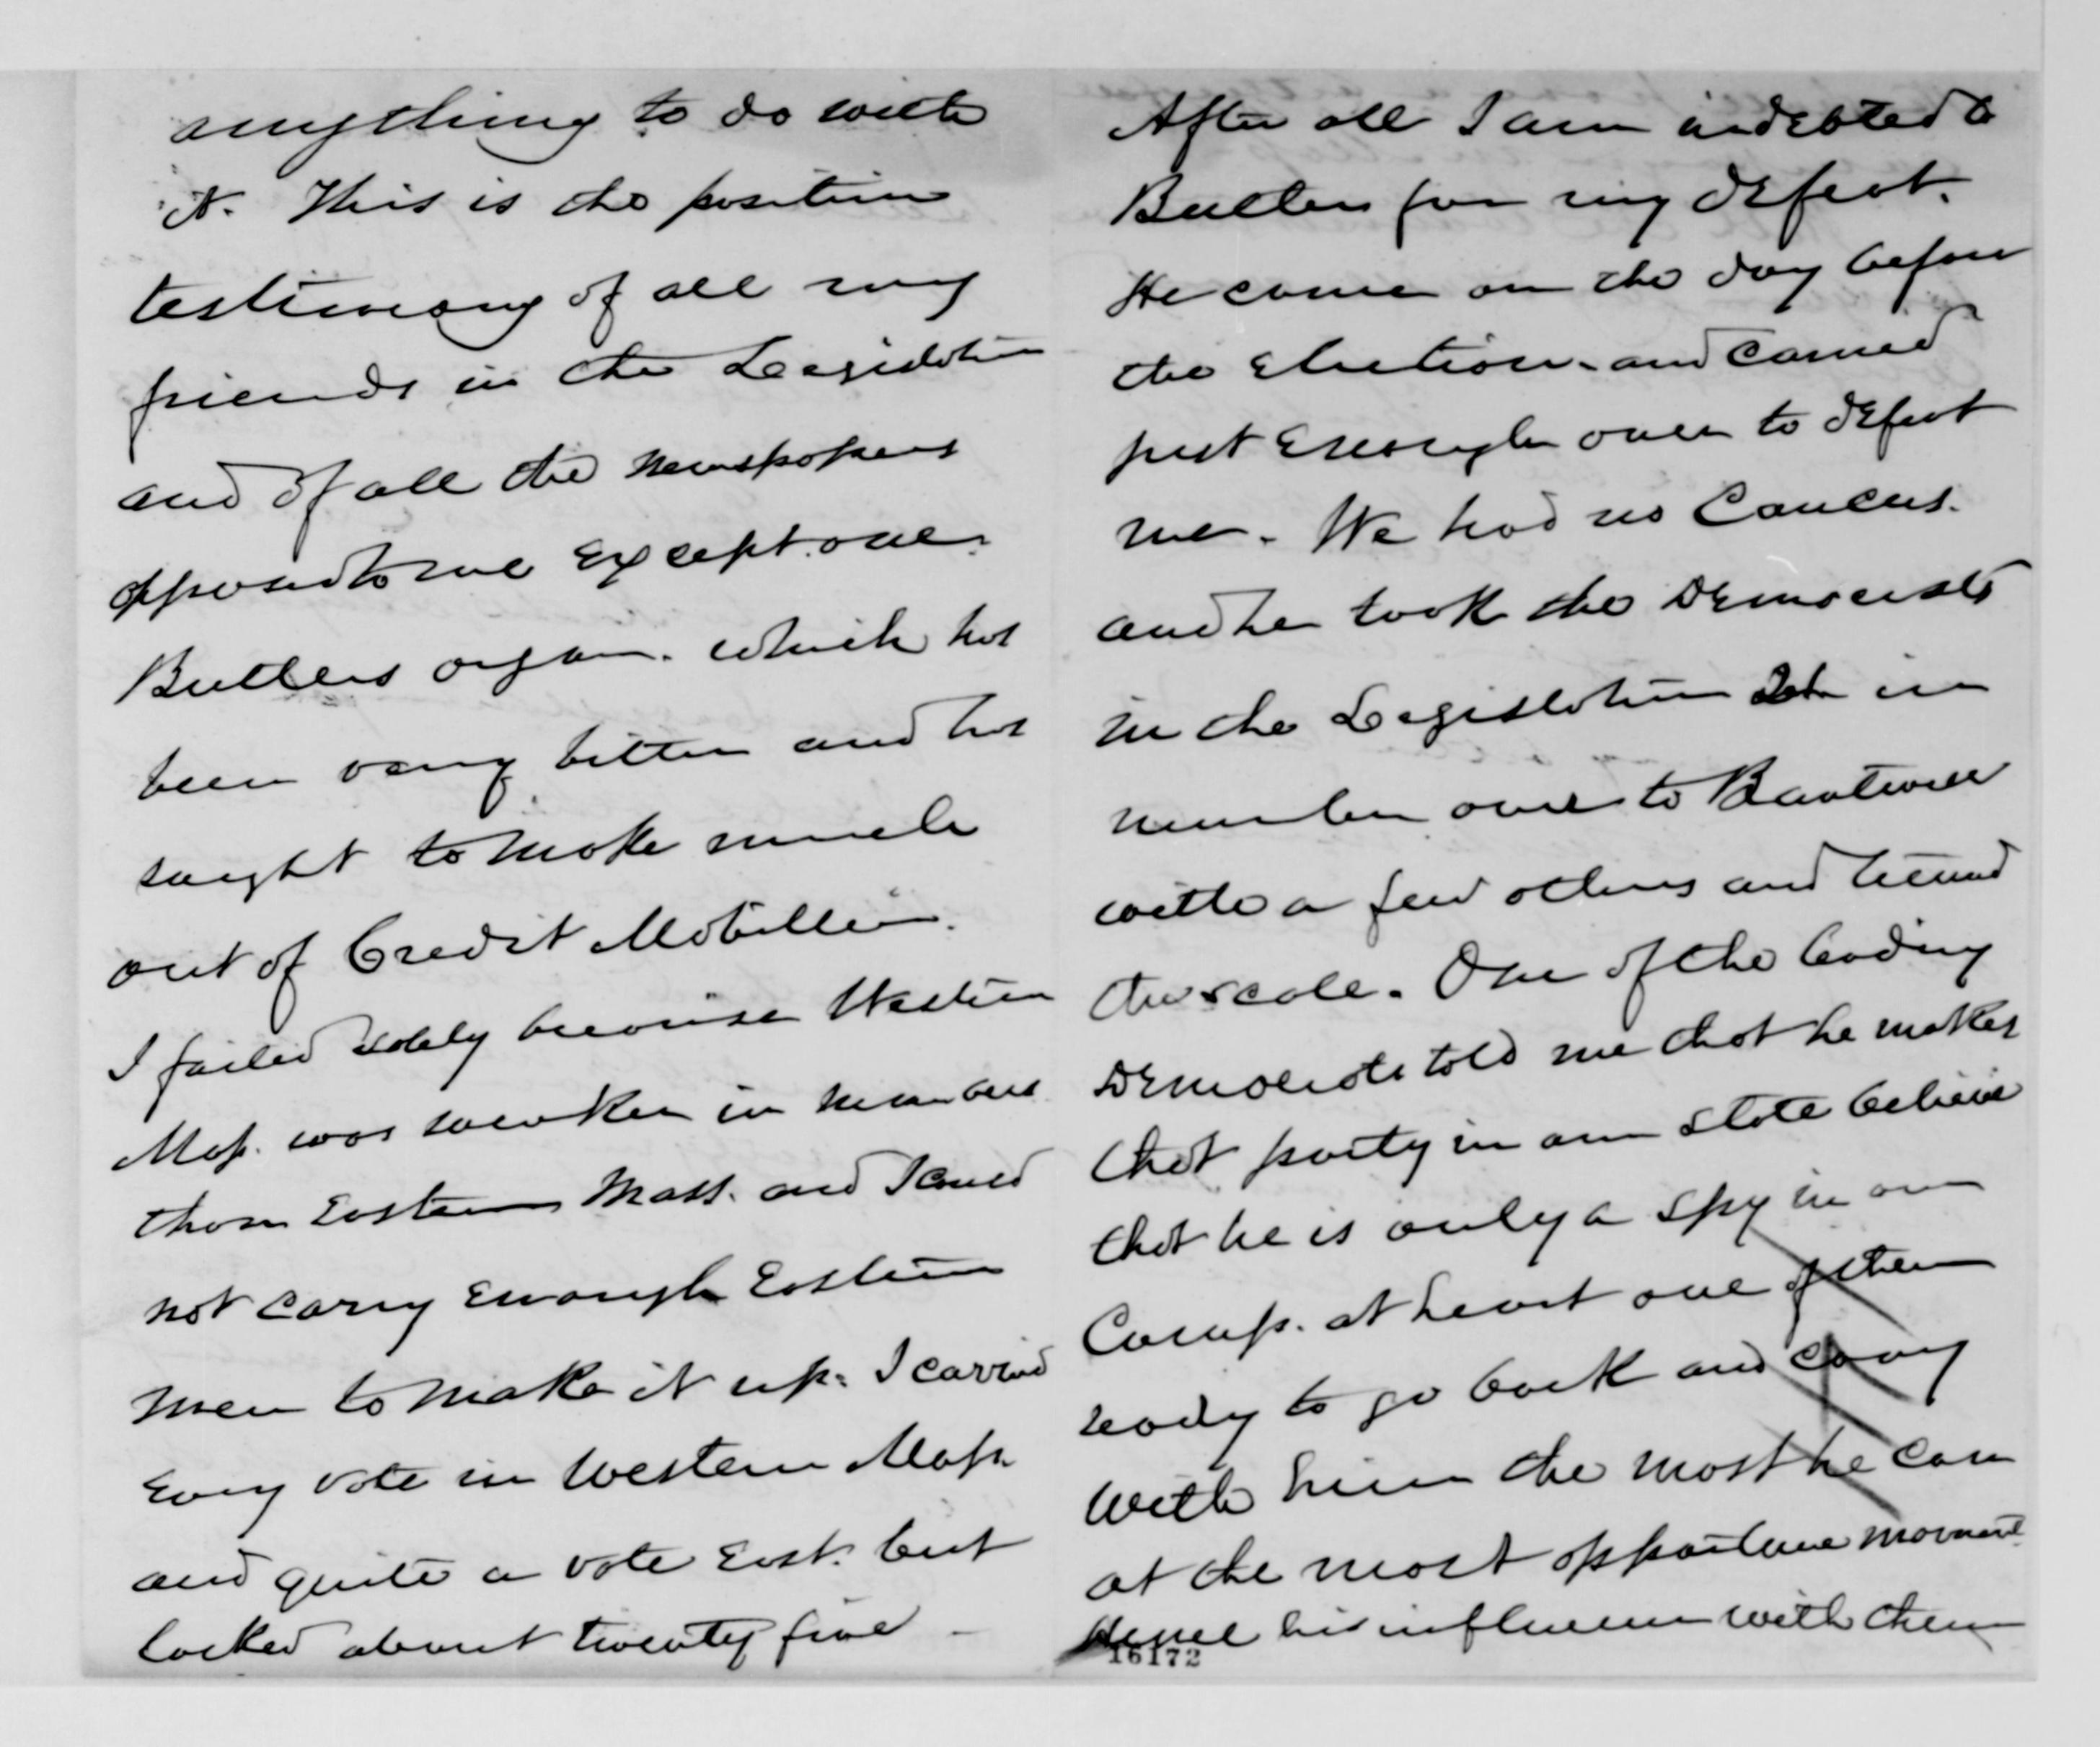 anything to do with
it. This is the position
testimony of all my
friends in the Legislature
and of all the newspapers
opposed to me except one.
Butlers organ. which has
been very bitter and has
sought to make much
out of Credit Mobilier.
I failed solely because Western
Mass. was weaker in numbers
than Eastern Mass. and I could
not carry enough Eastern
men to make it up. I carried
every vote in Western Mass.
and quite a vote East. but
lacked about twenty five
After all I am indebted to
Butler for my defeat.
He came on the day before
the election. and carried
just enough over to defeat
me. We had no Caucus.
and he took the Democrats
in the Legislature in
number over to Boutwell
with a few others and turned
the scale. One of the leading
Democrats told me that he makes
that party in our state believe
that he is only a spy in our
Camp. at heart one of them
ready to go back and carry
with him the most he can
at the most opportune moment
Hence his influence with them
16172